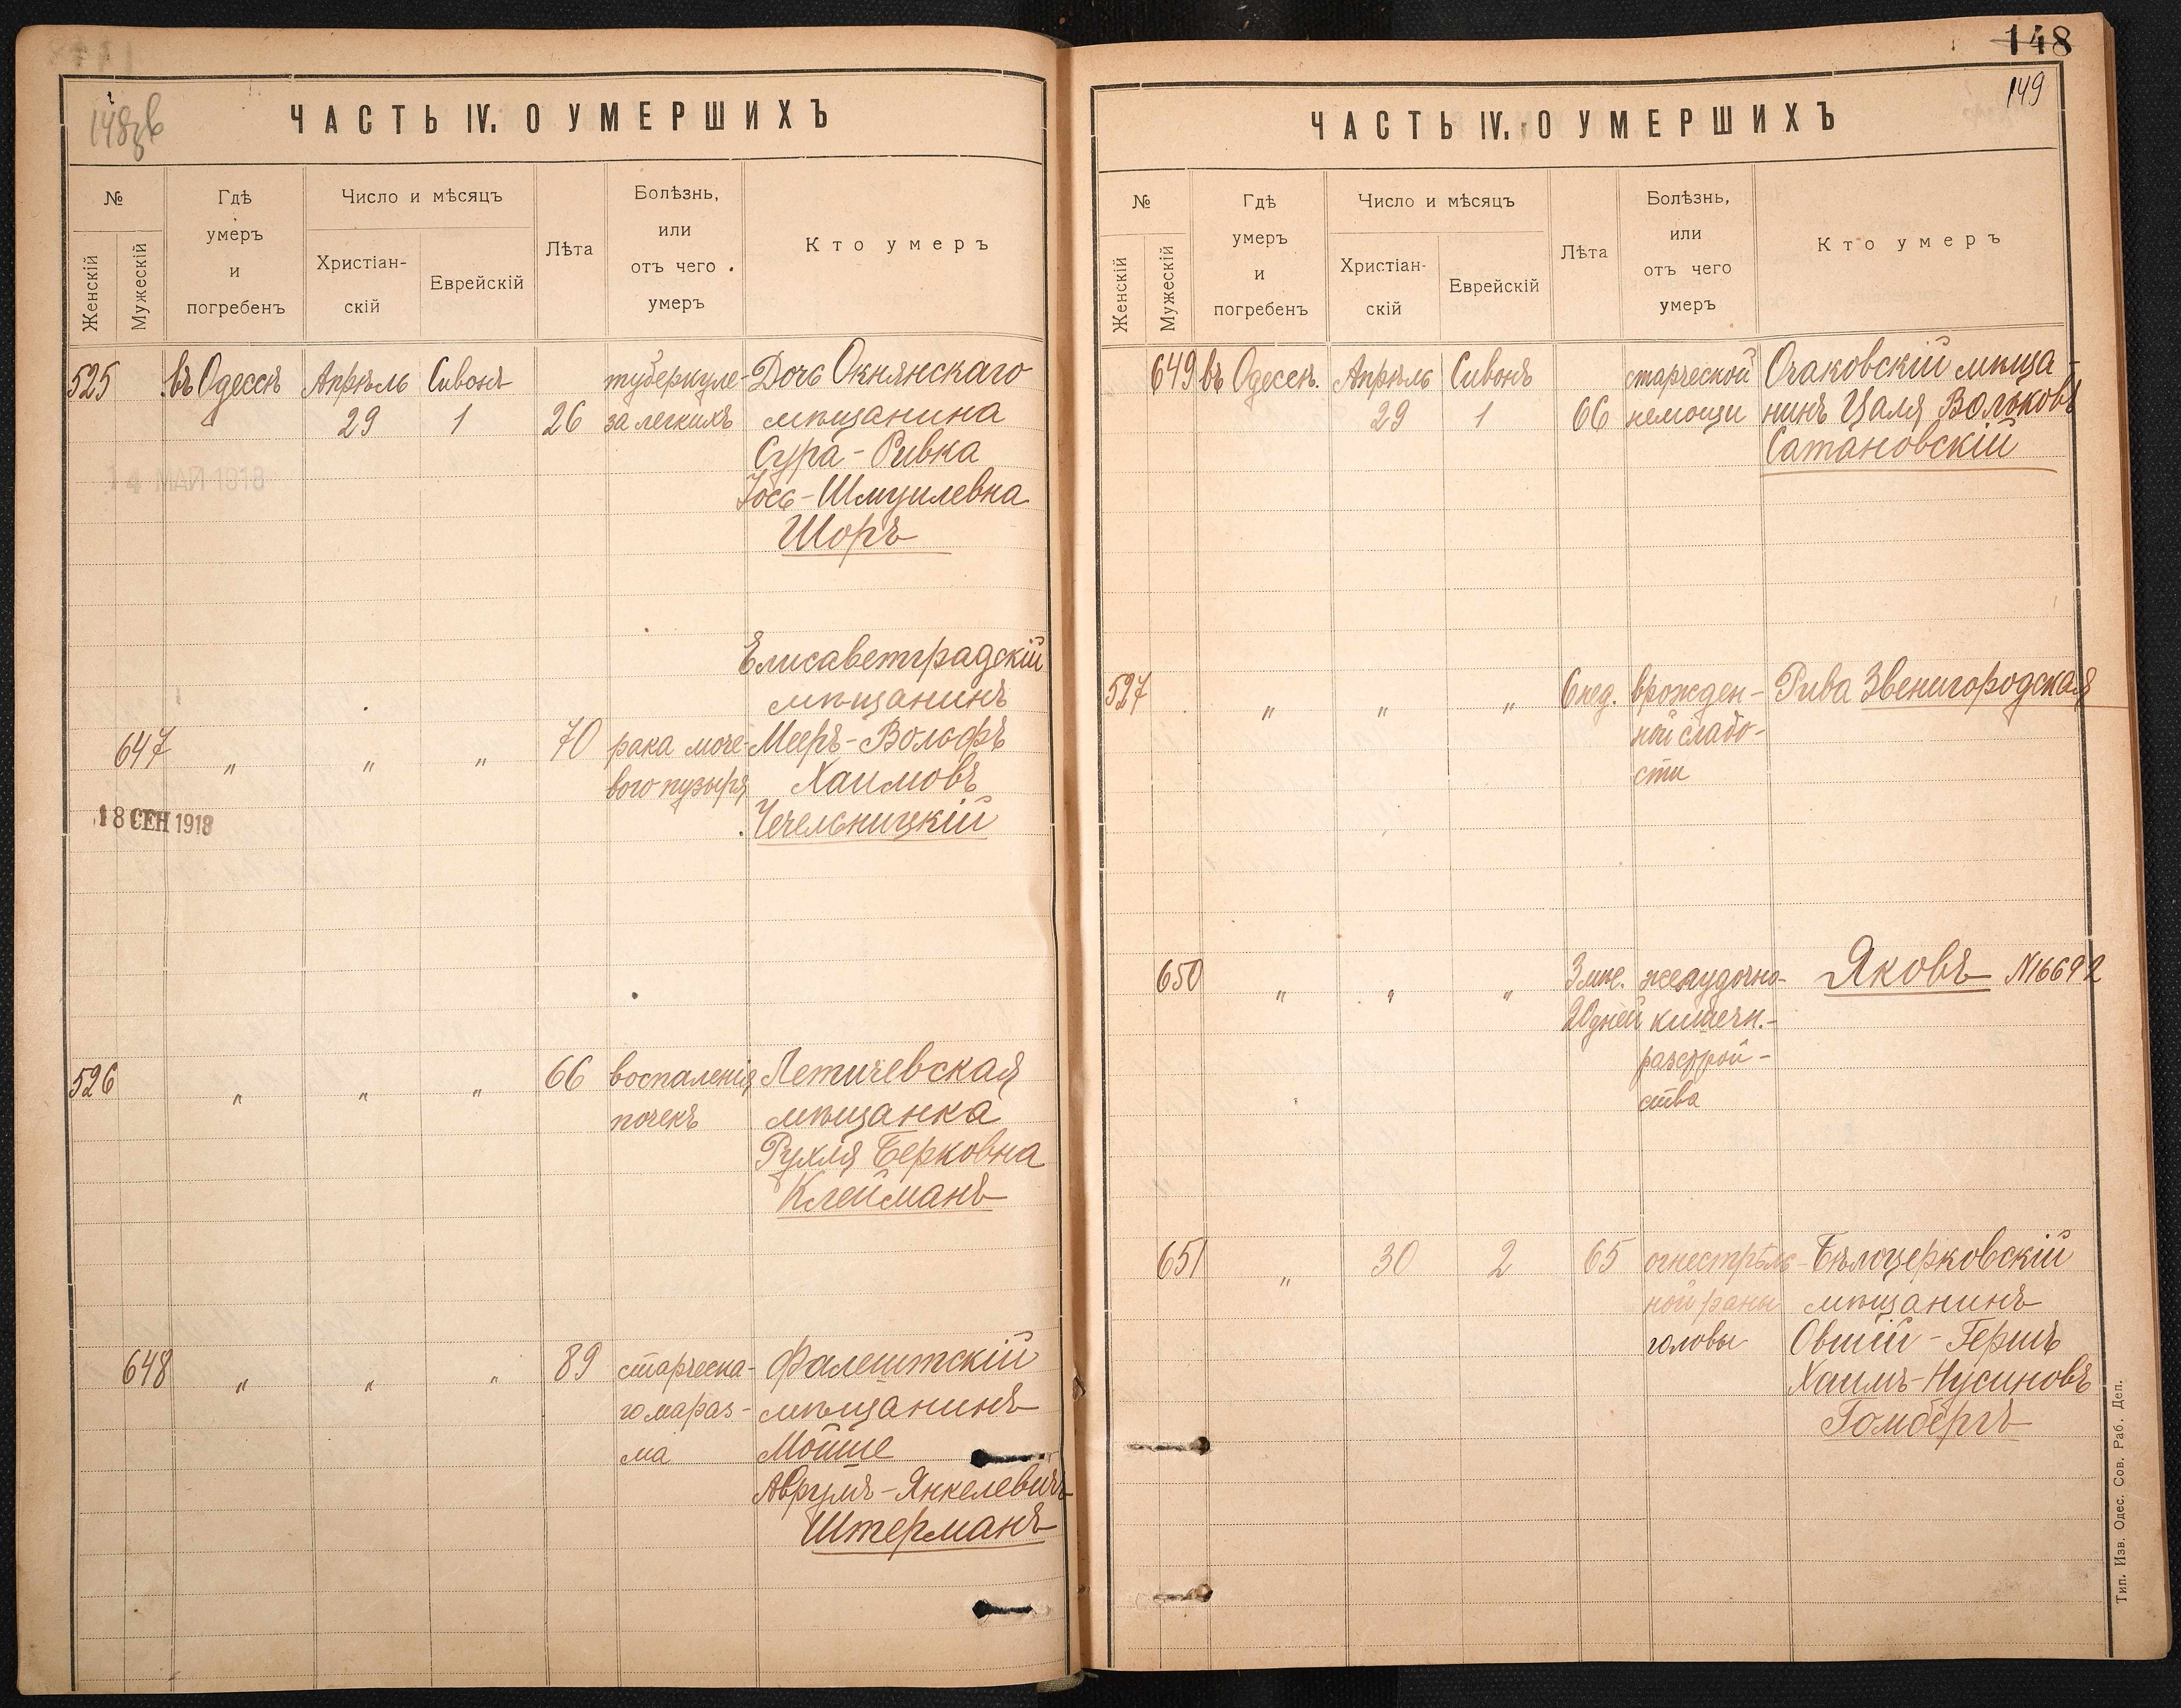 148зв
ЧАСТЬ IV. О УМЕРШИХЪ
№
Женскій
Мужескій
Гдѣ
умеръ
и
погребенъ
Число и мѣсяцъ
Христіан-
скій
Еврейскій
Лѣта
Болѣзнь,
или
отъ чего
умеръ
Кто умеръ
525 въ Одессѣ Апрѣль Сивонъ туберкуле- Дочь Окнянскаго
29 1 26 за легкихъ мѣщанина
Сура-Ривка
14 МАЙ 1918
Іось-Шмуилевна
Шоръ
Елисаветградскій
мѣщанинъ
647 " " " 70 рака моче- Мееръ-Вольфъ
вого пузыря Хаимовъ
18 СЕН 1918 Чечельницкій
526 " " " 66 воспаленія Летичевская
почекъ мѣщанка
Рухля Берковна
Клейманъ
648 " " " 89 старческа- Фалештскій
го мараз- мѣщанинъ
ма Мойше
Аврумъ-Янкелевичъ
Штерманъ
148
149
ЧАСТЬ IV. О УМЕРШИХЪ
№
Женскій
Мужескій
Гдѣ
умеръ
и
погребенъ
Число и мѣсяцъ
Христіан-
скій
Еврейскій
Лѣта
Болѣзнь,
или
отъ чего
умеръ
Кто умеръ
649 въ Одессѣ. Апрѣль Сивонъ старческой Очаковскій мѣща-
29 1 66 немощи нинъ Цаля Вольковъ
Сатановскій
527 " " " 6 нед. врожден- Рива Звенигородская
ной слабо-
сти
650 " " " 3 мѣс. желудочно- Яковъ N16692
20 дней кишечн.-
разстрой-
ства
651 " 30 2 65 огнестрѣль- Бѣлоцерковскій
ной раны мѣщанинъ
головы Овшій-Гершъ
Хаимъ-Нусиновъ
Гомбергъ
Тип. Изв. Одес. Сов. Раб. Деп.